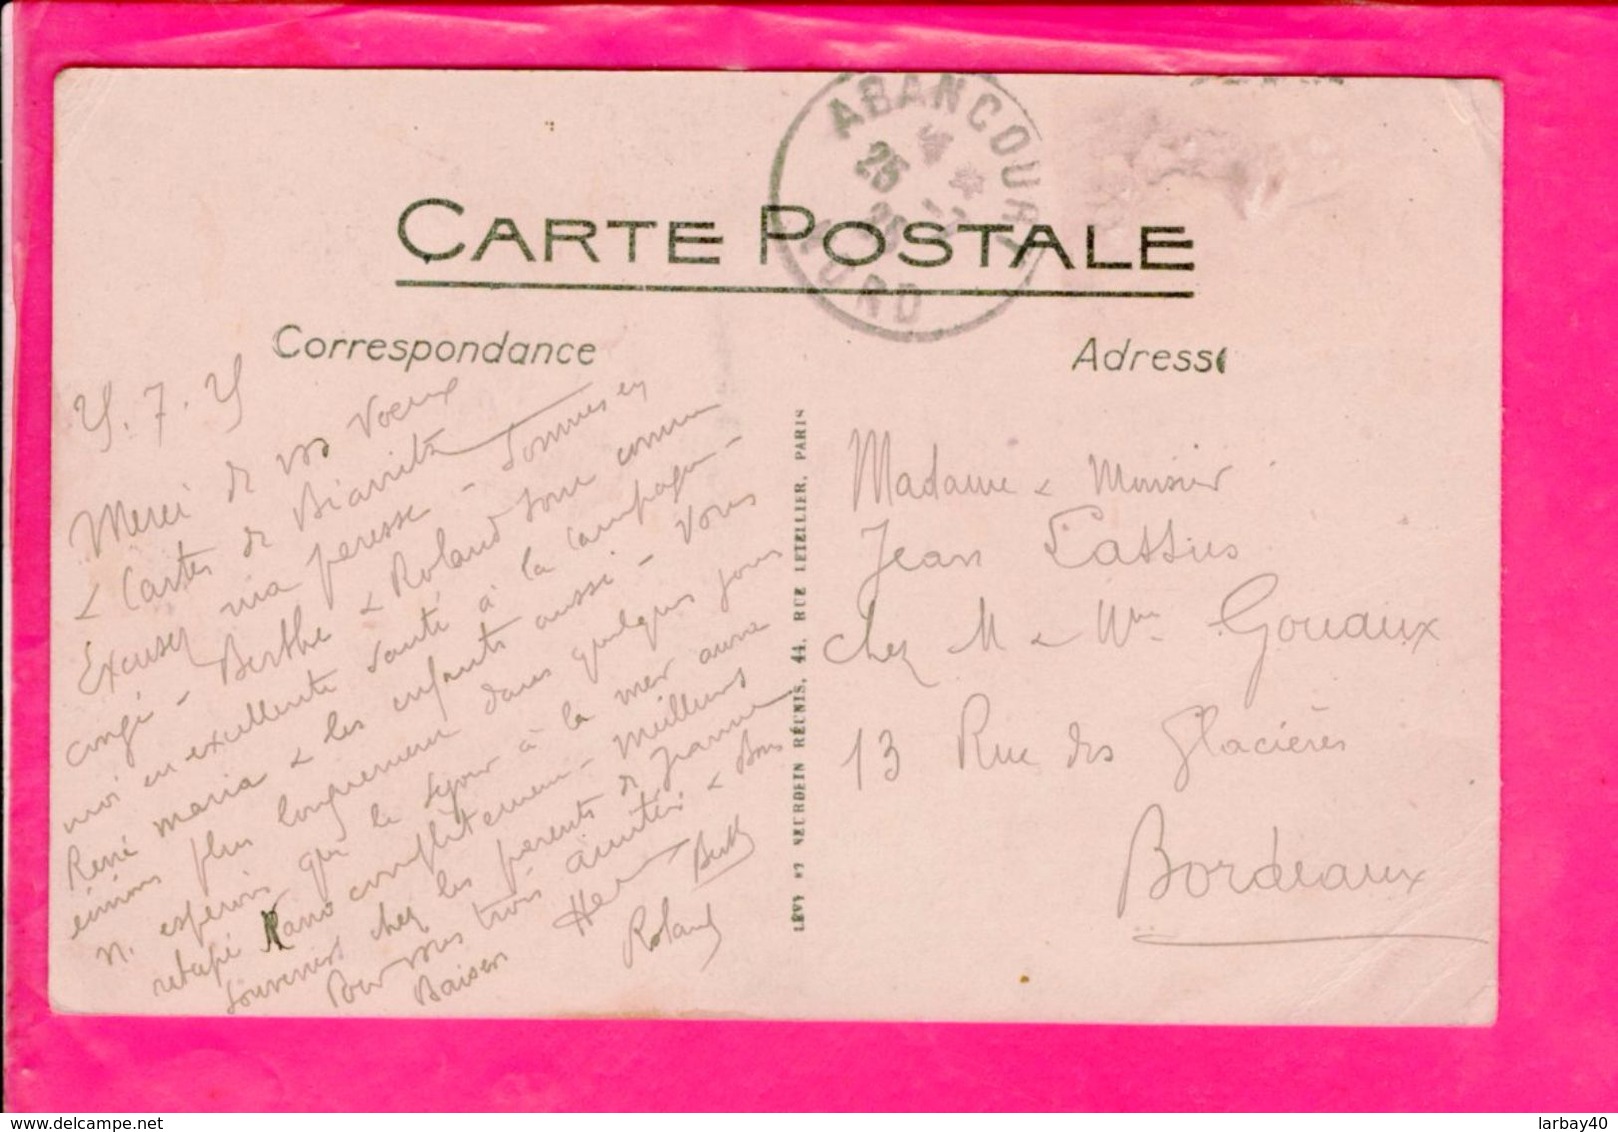 ABANCOURT
25 7
25
NORD
CARTE POSTALE
Correspondance
Adresse
25.7.25
Merci de vos voeux
& Cartes de Biarritz
Excusez ma paresse - Sommes en
congé - Berthe & Roland sont comme
moi en excellente santé à la campagne -
René Maria & les enfants aussi - Vous
écrirons plus longuement dans quelques jours
N. espérons que le séjour à la mer aura
retapé complètement - Meilleurs
souvenirs chez les parents de Jeanne
Pour vous trois amitiés & Bons
Baisers
Berthe
Roland
LÉVY ET NEURDEIN RÉUNIS, 44, RUE LETELLIER, PARIS
Madame & Monsieur
Jean Cassius
chez M & Mme Gouaux
13 Rue des Glacières
Bordeaux
www.delcampe.net
larbay40